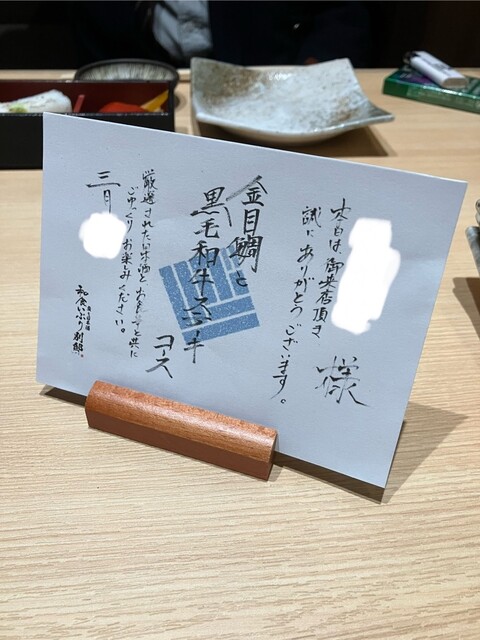 様
本日は御来店頂き
誠にありがとうございます。
金目鯛と
黒毛和牛ステーキ
コース
厳選された日本酒と
ごゆっくりお楽みください。
三月